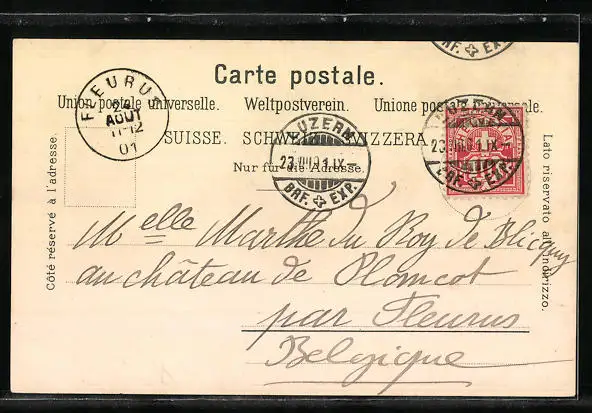 BRF. EXP.
Carte postale.
Union postale universelle. Weltpostverein. Unione postale universale.
SUISSE. SCHWEIZ. SVIZZERA
Nur für die Adresse.
Côté réservé à l'adresse.
Lato riservato all'indirizzo.
FLEURUS
24
AOUT
11-12
01
LUZERN
23.VIII.01.IX-
BRF. EXP.
LUZERN
23.VIII.01.IX-
BRF. EXP.
Melle Marthe du Roy de Blicquy
au château de Plomcot
par Fleurus
Belgique